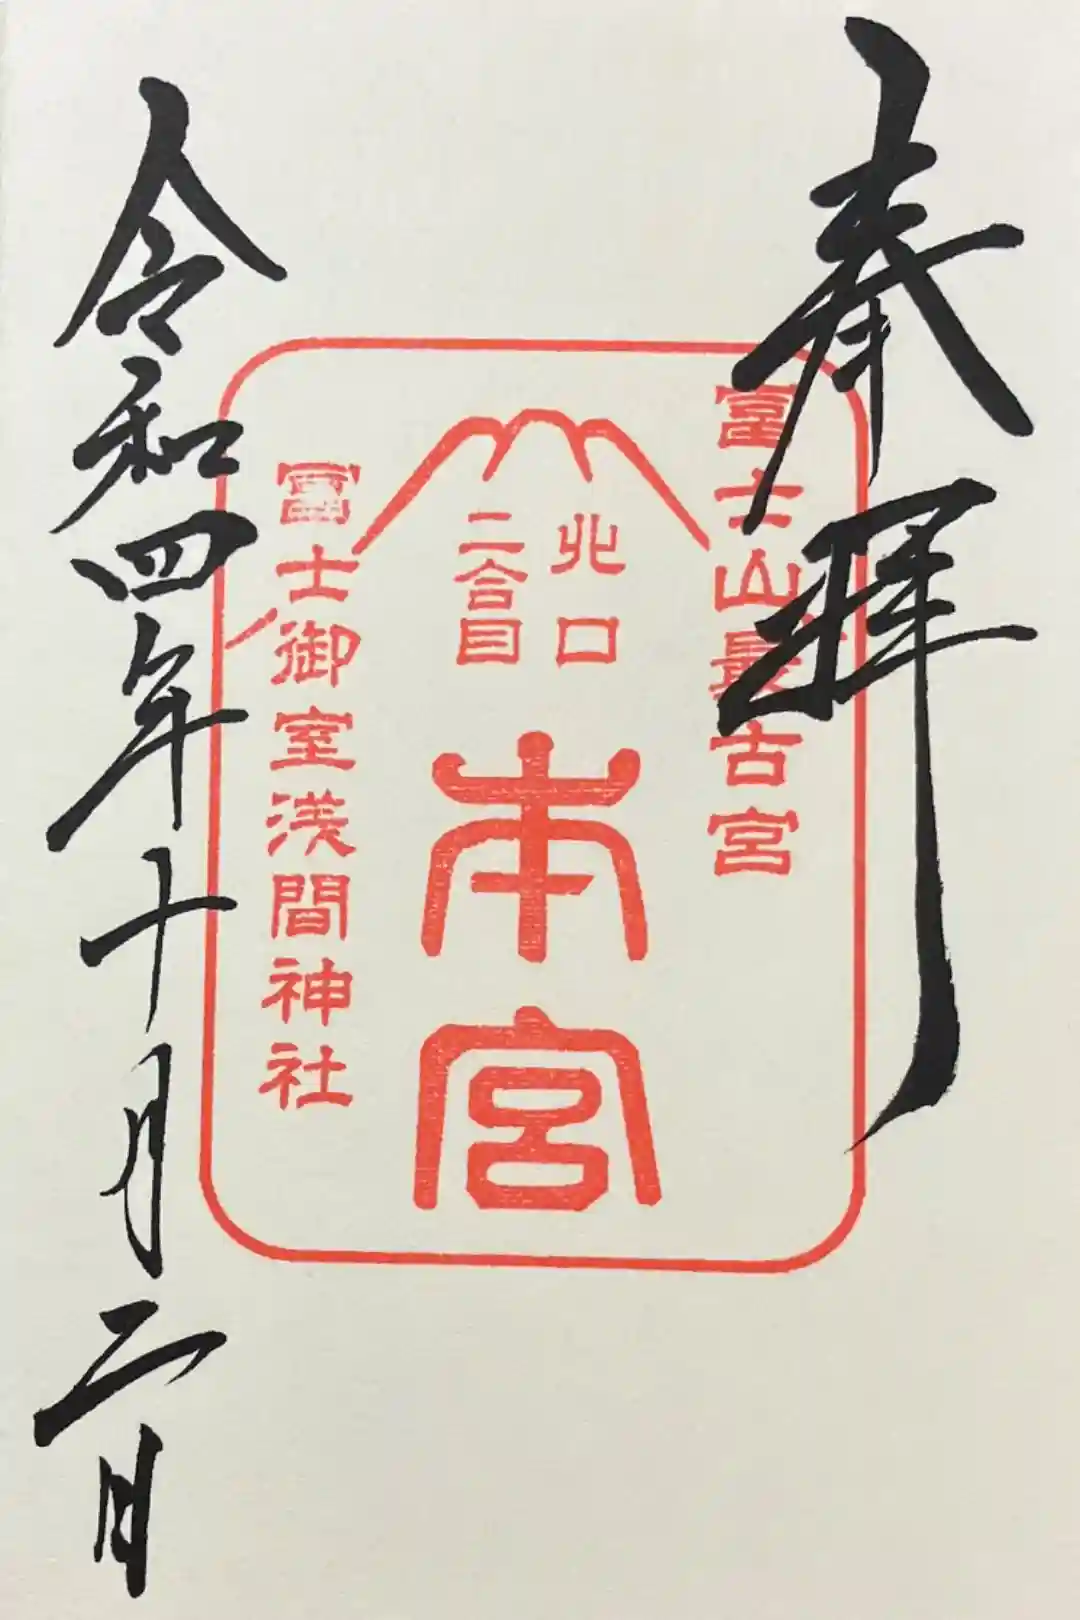 奉拝
富士山最古宮
北口
二合目
本宮
冨士御室浅間神社
令和四年十月二日